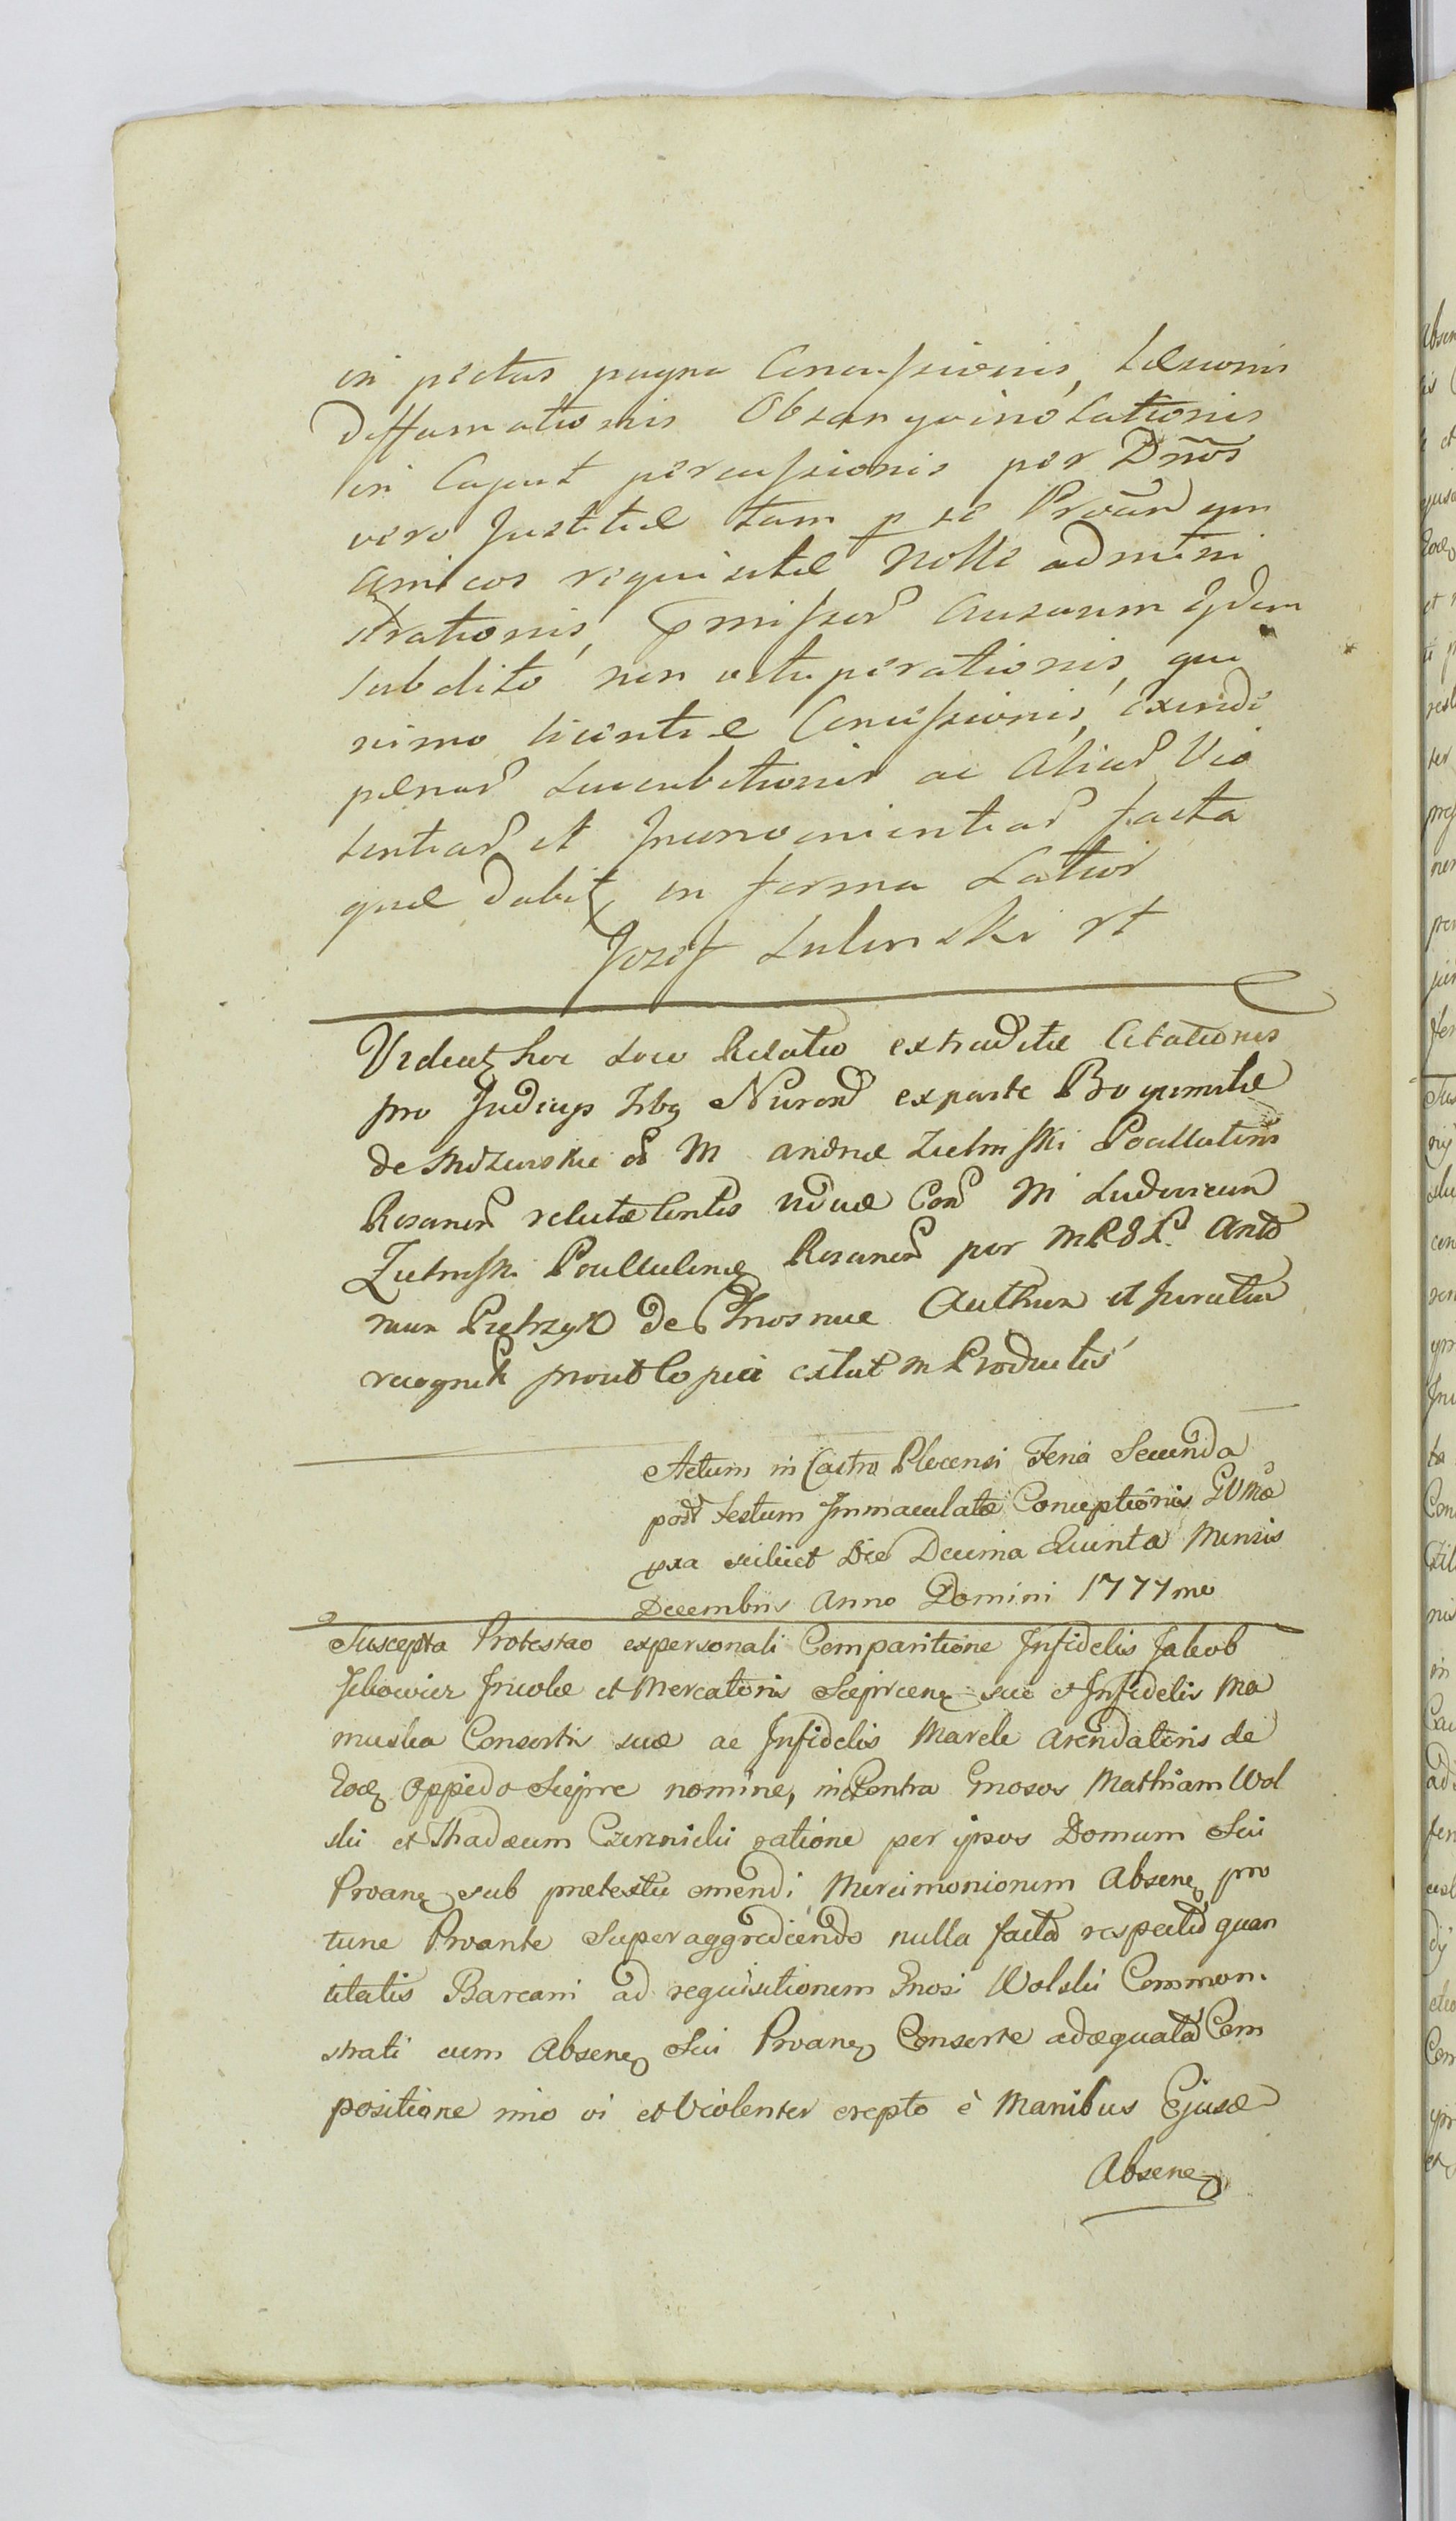 in pectus pugna Concussionis, Læsionis
diffamationis Obsanguinolationis
in Caput percussionis per Dnos
vero Justitiæ tam p se Proan qm
amicos requisitæ nolle admini
strationis, pmissor ausuum Ejdem
subdito non vituperationis, qui
nimo licentiæ Concessionis, exinde
pænar Luccubitionis ac Aliar Vio
lentiar et Inconvenientiar facta
quæ dabit in forma Latior
Jozef Lulinski rt
Videat hoc Loco Relatio extraditæ Citationis
pro Judicys Trbg Nurens exparte Bogumilæ
de M Andreæ Zielinski Pocillatoris
Rosanen relictæ Con M Ludovicum
Zielinski Pocillatorem Rosanen per MRSR Anto
num Pietrzyk de Krosnice Authen et Juratum
recognit prout Copia extat in Productis
Actum in Castro Plocensi Feria Secunda
post Festum Immaculatæ Conceptionis GVMæ
pxa scilicet Die Decima Quinta Mensis
Decembris Anno Domini 1777mo
Suscepta Protestao expersonali Comparitione Infidelis Jakob
Ickowicz Incolæ et Mercatoris Sieprcen suo et Infidelis Ma
muska Consortis suæ ac Infidelis Marek arendatoris de
Eod Oppido Sieprc nomine, in Contra Gnosos Mathiam Wol
ski et Thadæum Czerznicki ratione per ipsos Domum Sui
Proan sub prætextu emendi Mercimoniorum Absen pro
tunc Proante Superaggrediendo nulla facta respectu quan
titatis Barcani ad requisitionem Gnosi Wolski Commons
strati cum Absen Sui Proan Consorte adæquata Com
positione imo vi et Violenter erepto è Manibus Ejusd
Absen